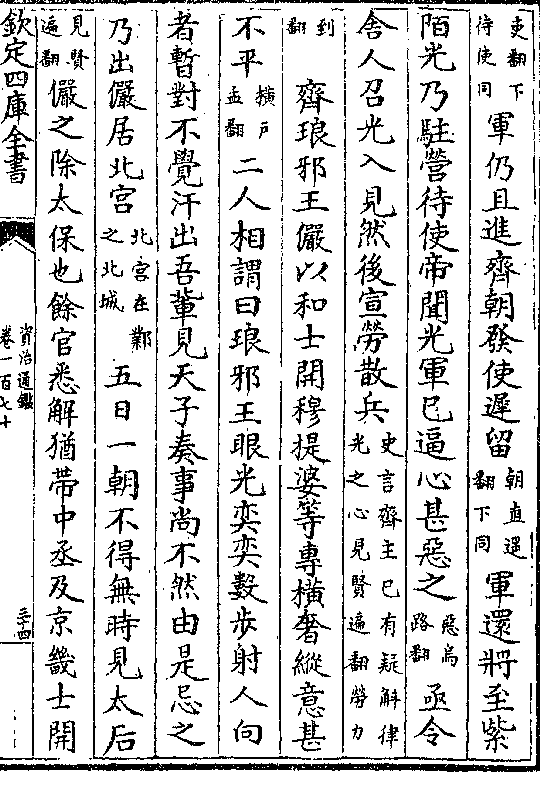 吏翻下待使同軍仍且進齊朝發使遲留朝直遥翻下同軍還將至紫
陌光乃駐營待使帝聞光軍已逼心甚惡之惡烏路翻亟令
舍人召光入見然後宣勞散兵史言齊主已有疑斛律光之心見賢遍翻勞力
到翻齊琅邪王儼以和士開穆提婆等專橫奢縱意甚
不平橫戶孟翻二人相謂曰琅邪王眼光奕奕數步射人向
者暫對不覺汗出吾輩見天子奏事尚不然由是忌之
乃出儼居北宮北宮在鄴之北城五日一朝不得無時見太后
見賢遍翻儼之除太保也餘官悉解猶帶中丞及京畿士開
欽定四庫全書
資治通鑑
卷一百七十
三十四